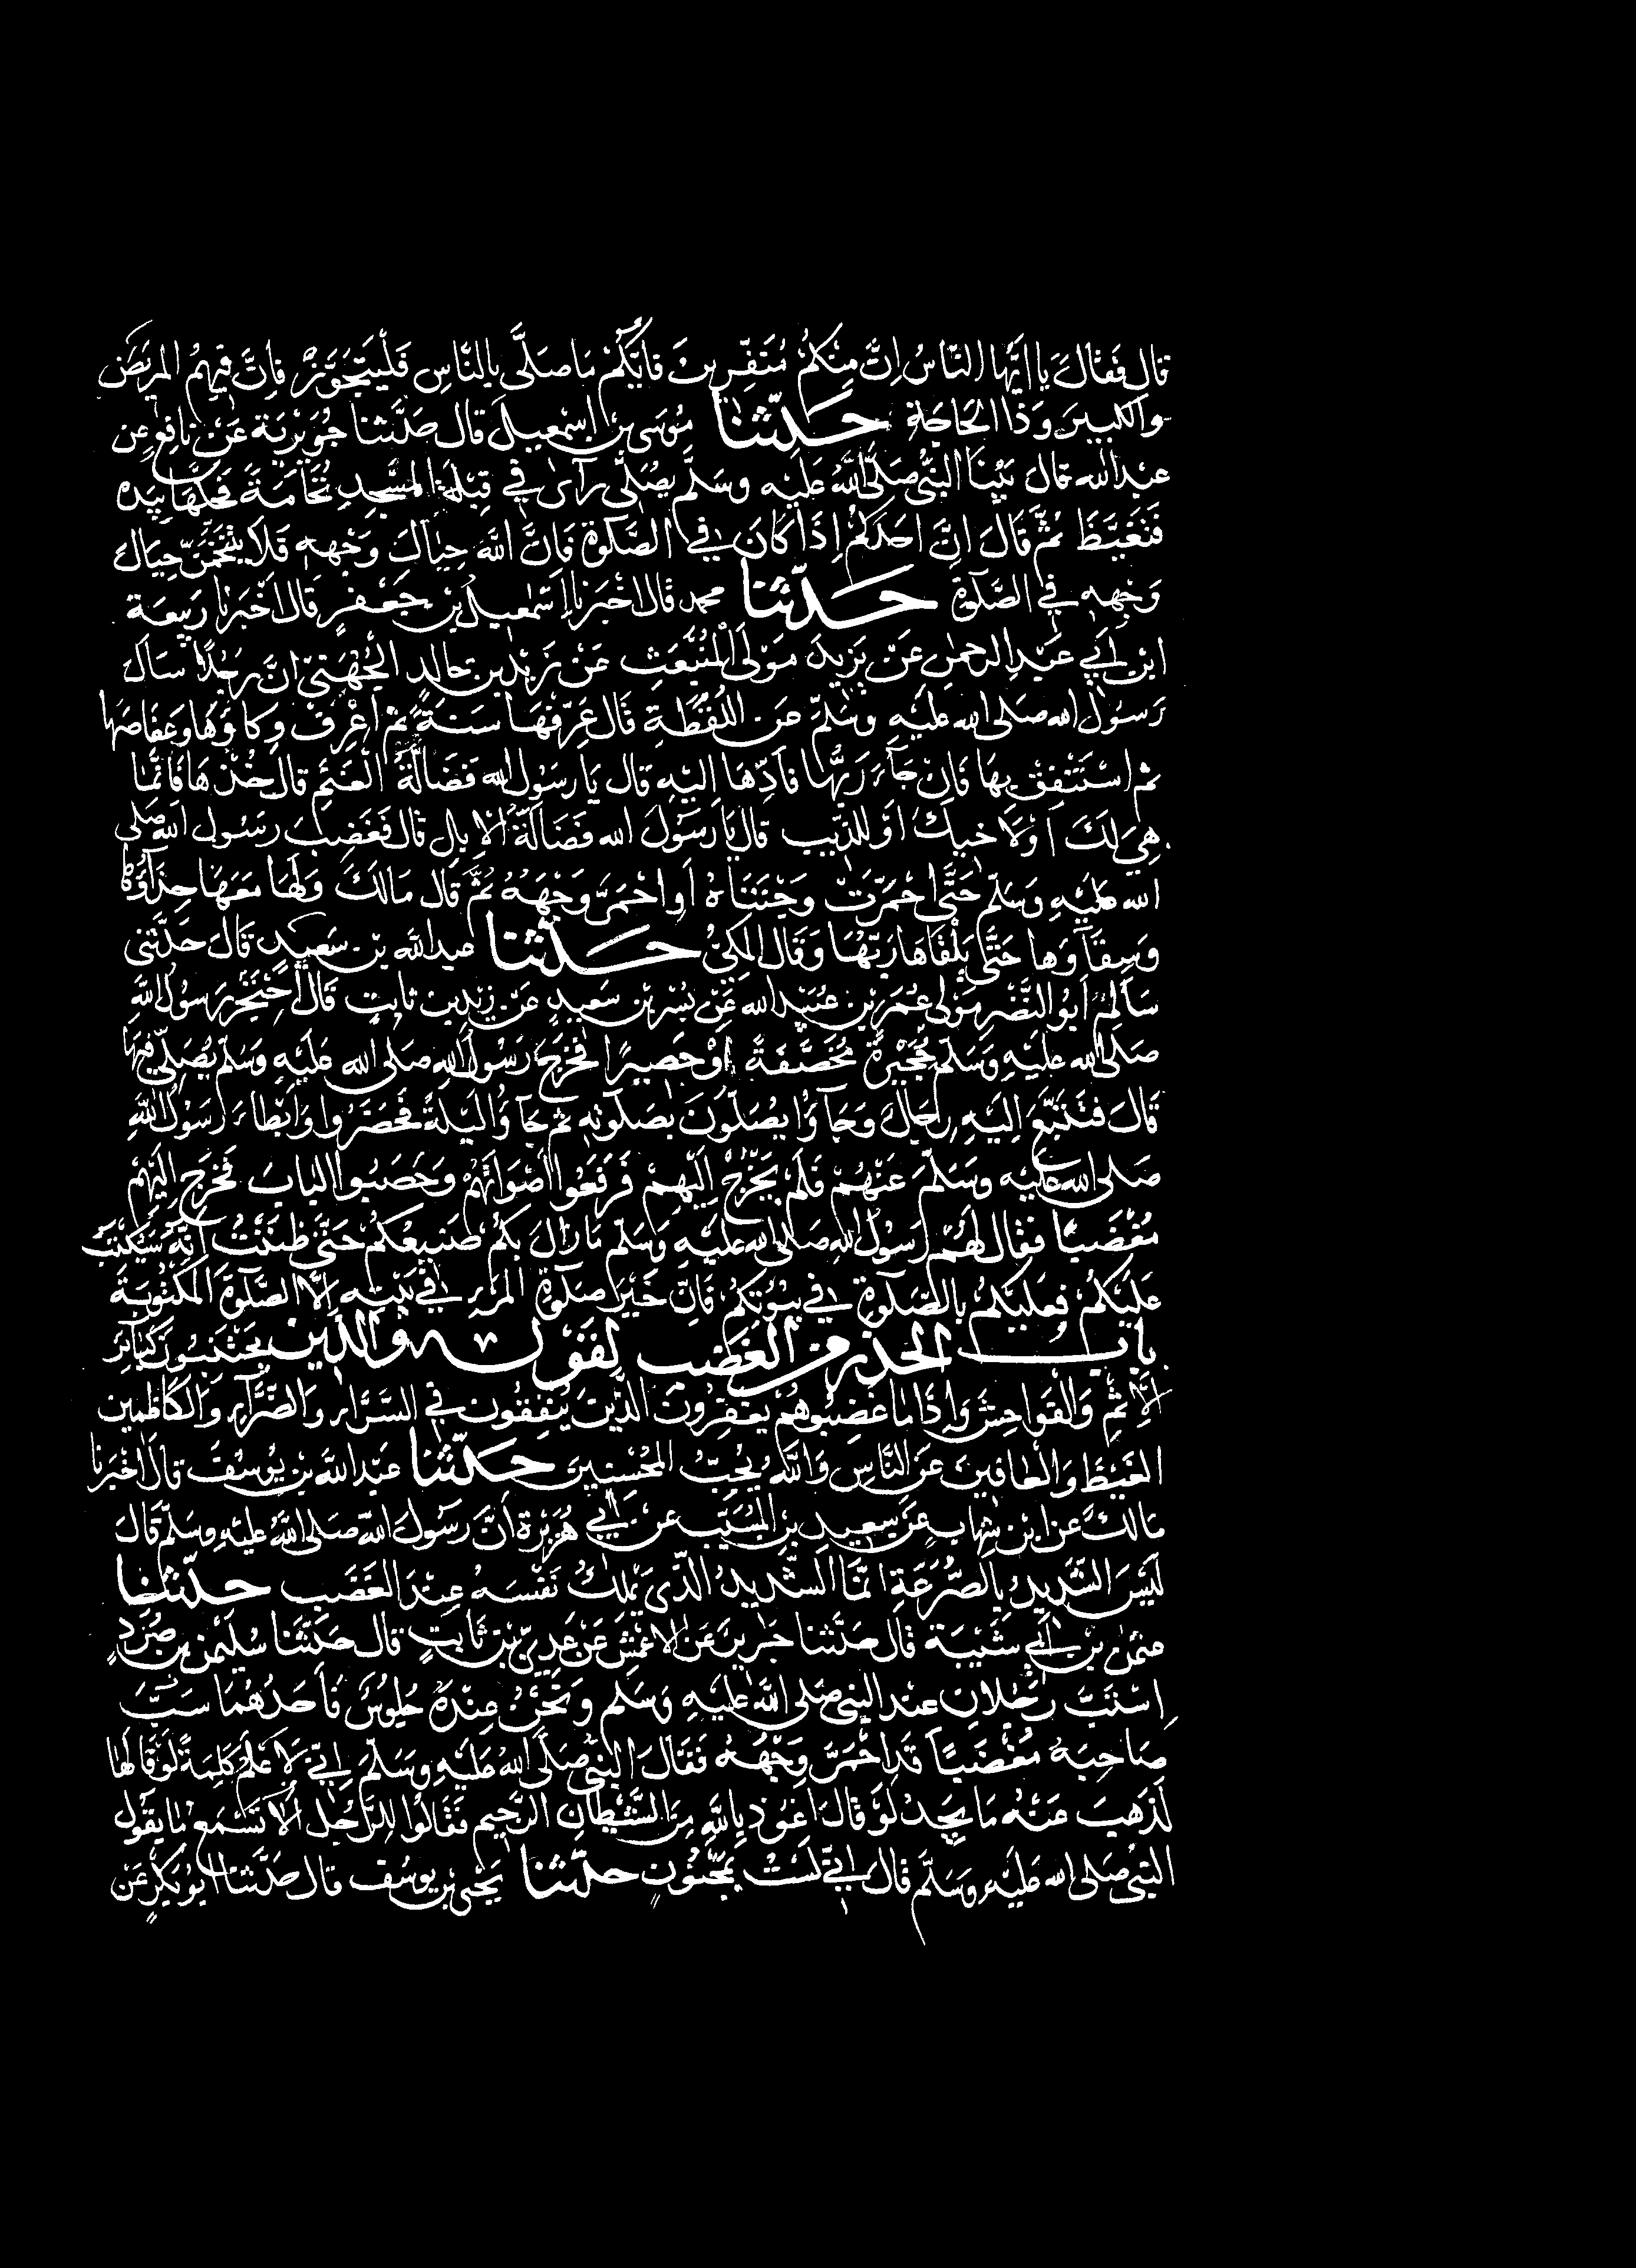 قال فَقالَ يا ايّها النّاسُ اِنَّ مِنْكُمْ مُنَفِّرِينَ فايّكُمْ مَا صَلَّى بِالنّاسِ فَلْيَتَجَوَّزْ فاِنَّ فيهِمُ المريضَ
والكبيرَ وَذَا الحَاجَةِ حَدّثنا مُوسَى بن اسْمعيلَ قال حَدَّثنا جُوَيْرِيَة عَنْ نافِعٍ عن
عَبْدِ الله قالَ بَيْنَا النَّبيّ صَلَّى اللهُ عَلَيْهِ وَسَلَّم يُصَلّى رَآى في قِبْلَةِ المسْجِدِ نُخَامَةً فحكّها بِيَدِه
فَتَغَيَّظَ ثُمَّ قَالَ اِنَّ اَحَدَكُمْ اِذَا كَانَ في الصَّلوةِ فَاِنَّ اللهَ حِيالَ وَجْهِهِ فَلا يَتَنَخَّمَنَّ حِيَالَ
وَجْههِ في الصَّلوةِ حَدّثنا محمد قالَ اخْبَرنا اِسْمعيلُ بن جَعْفرٍ قَال اَخْبَرنا رَبيعَة
ابن اَبي عَبْدِ الرحمٰن عَنْ يَزيدَ مَوْلَى الْمُنْبَعِثِ عَنْ زَيْدِ بن خالِدٍ الجُهَنىّ انّ رَجُلًا سَاَلَ
رَسُولَ الله صَلى الله عَليْهِ وسَلّمَ عَن اللُّقَطَةِ قَال عَرِّفْهَا سَنَةً ثمّ اعْرِفْ وِكاؤَهَا وَعِفاصَهَا
ثم اسْتَنْفِقْ بِهَا فَاِنْ جَآءَ رَبُّها فادِّهَا اِلَيْهِ قال يَا رسَولَ الله فَضَالّةُ الغَنَمِ قال خُذْهَا فَاِنّما
هِيَ لَكَ اَوْ لاَخيكَ اَوْ لِلذِّيبِ قالَ يَا رَسُولَ الله فَضَالّةُ الاِبِلِ قال فَغَضِبَ رسُول الله صَلى
الله عَلَيْهِ وَسَلّم حَتَّى احْمَرّتْ وَجْنَتَاهُ اَوِ احْمَرَّ وَجْهَهُ ثُمَّ قال مَالَكَ وَلهَا مَعَهَا حِذَآؤهَا
وَسِقَآؤها حَتَّى يَلْقَاهَا رَبُّهَا وَقَال المكيّ حَدّثنا عبدالله بن سَعيد قَالَ حَدّثَنى
سَالِمٌ اَبُو النَّضْرِ مَوْلَى عُمَرَ بْنِ عُبَيْدِ الله عَنْ بُسْرِ بْنِ سَعيدٍ عَنْ زَيْدِ بن ثابتٍ قَالَ احْتَجَرَ رَسُولُ الله
صَلَى الله عَلَيْهِ وَسَلّمَ حُجَيْرَةً مُخَصَّفَةً اَوْ حَصيرًا فَخَرَجَ رَسُولُ الله صَلى الله عَلَيْهِ وَسَلّم يُصَلّي فِيهَا
قَالَ فَتَتَبَّعَ اِلَيْهِ رِجَالٌ وَجَآؤُا يُصَلّونَ بِصَلوتِهِ ثُمّ جَآؤُا لَيْلَةً فَحَضَرُوا وَابْطَاءَ رَسُولُ اللهِ
صَلى الله عَلَيْهِ وَسَلّمَ عَنْهُمْ فَلَمْ يَخْرُجْ اِلَيْهِمْ فَرَفَعُوا اَصْوَاتَهُمْ وَحَصَبُوا البابَ فَخَرَجَ اِلَيْهِمْ
مُغْضَبًا فَقَال لهُمْ رَسُولُ الله صَلى الله عَليْهِ وَسَلم مَا زَالَ بِكُمْ صَنيعُكُمْ حَتّى ظَنَنْتُ اِنّهُ سَيُكْتَبُ
عَلَيْكُمْ فعَلَيْكُمْ بِالصّلوةِ في بُيُوتِكُمْ فَاِنَّ خَيْرَ صَلوةِ المَرْءِ في بَيْتِهِ اِلّا الصَّلَوةَ المَكتُوبَةَ
باب الحَذرِ مِنَ الغَضَبِ لِقَوْلِهِ والّذين يَجْتَنِبُونَ كَبآئِرَ
الاِثْمِ وَالْفَواحِشَ وَاِذَا مَا غَضِبُوا هُمْ يَغْفِرُونَ الّذينَ يُنْفِقُون في السَّرّاءِ وَالضَّرّآءِ وَالكَاظِمينَ
الغَيْظَ وَالْعَافينَ عَنِ النَّاسِ وَاللهُ يُحِبّ المُحْسِنينَ حَدّثنا عَبْدالله بن يُوسُفَ قالَ اخْبَرنا
مَالكٌ عَنِ ابْنِ شِهَابٍ عَنْ سَعيدِ بنِ المُسَيّبِ عَنْ اَبي هُرَيْرَة اَنَّ رَسُولَ اللهِ صَلَى اللهُ عَليْهِ وسَلّم قَالَ
لَيْسَ الشّديدُ بِالصُّرَعَةِ انّما الشّديدُ الّذى يَمْلِكُ نَفْسَهُ عِنْدَ الغَضَبِ حدّثنا
عثمٰن بْن اَبي شَيْبَة قال حَدّثنا جَريرٌ عَن الاعْمَشِ عَنْ عَدِيّ بْنِ ثَابِتٍ قال حَدّثنَا سُليمٰن بن صُرَدٍ
اِسْتَبَّ رَجُلانِ عِند النبىّ صَلى اللهُ عَليْهِ وَسَلم وَنَحْنُ عِنْدَهُ جُلوُسٌ فَاَحَدُهُمَا سَبَّ
صَاحِبَهُ مُغْضَبًا قَدِ احْمَرَّ وَجْهُهُ فَقَالَ النّبىّ صَلَى اللهُ عَلَيْهِ وَسَلّمَ اِنّي لَاَعْلَمُ كَلِمَةً لَوْ قَالهَا
لَذَهَبَ عَنْهُ مَا يَجِدُ لَوْ قَالَ اَعُوذُ بِاللهِ مِنَ الشَّيْطانِ الرَّجيمِ فَقَالُوا لِلرَّجُلِ اَلَا تَسْمَعُ مَا يَقُولُ
النّبىّ صَلى الله عَلَيْهِ وَسَلّم قَالَ اِنّي لَسْتُ بِمَجْنُونٍ حدّثنا يَحْيَى بن يوسُفَ قال حَدَّثنا ابُو بَكْرٍ عَن